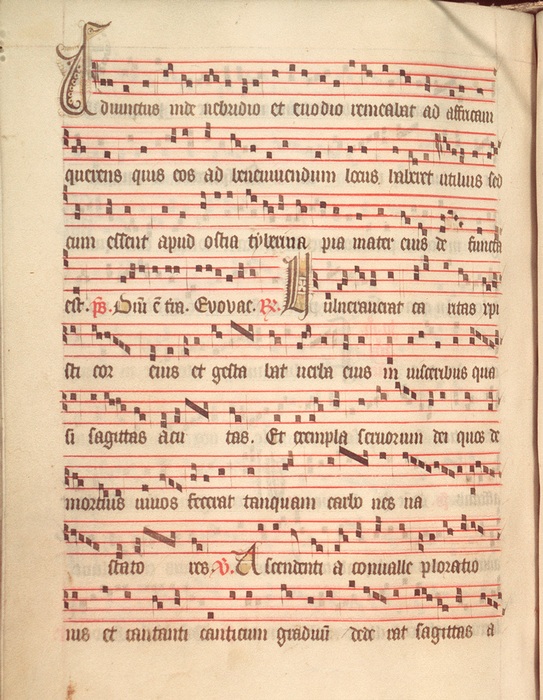 Adiunctus inde nebridio et euodio remeabat ad affricam
querens quis eos ad bene uiuendum locus haberet utilius sed
cum essent apud ostia tyberina pia mater eius de functa
est. ps. Dm̄ē tra. Evovae. R. Uulnerauerat ca ritas xpi
sti cor eius et gesta bat uerba eius in uisceribus qua
si sagittas acu tas. Et exempla seruorum dei quos de
mortuis uiuos fecerat tanquam carbo nes ua
stato res. V. Ascendenti a conualle ploratio
nis et cantanti canticum graduū dede rat sagittas a